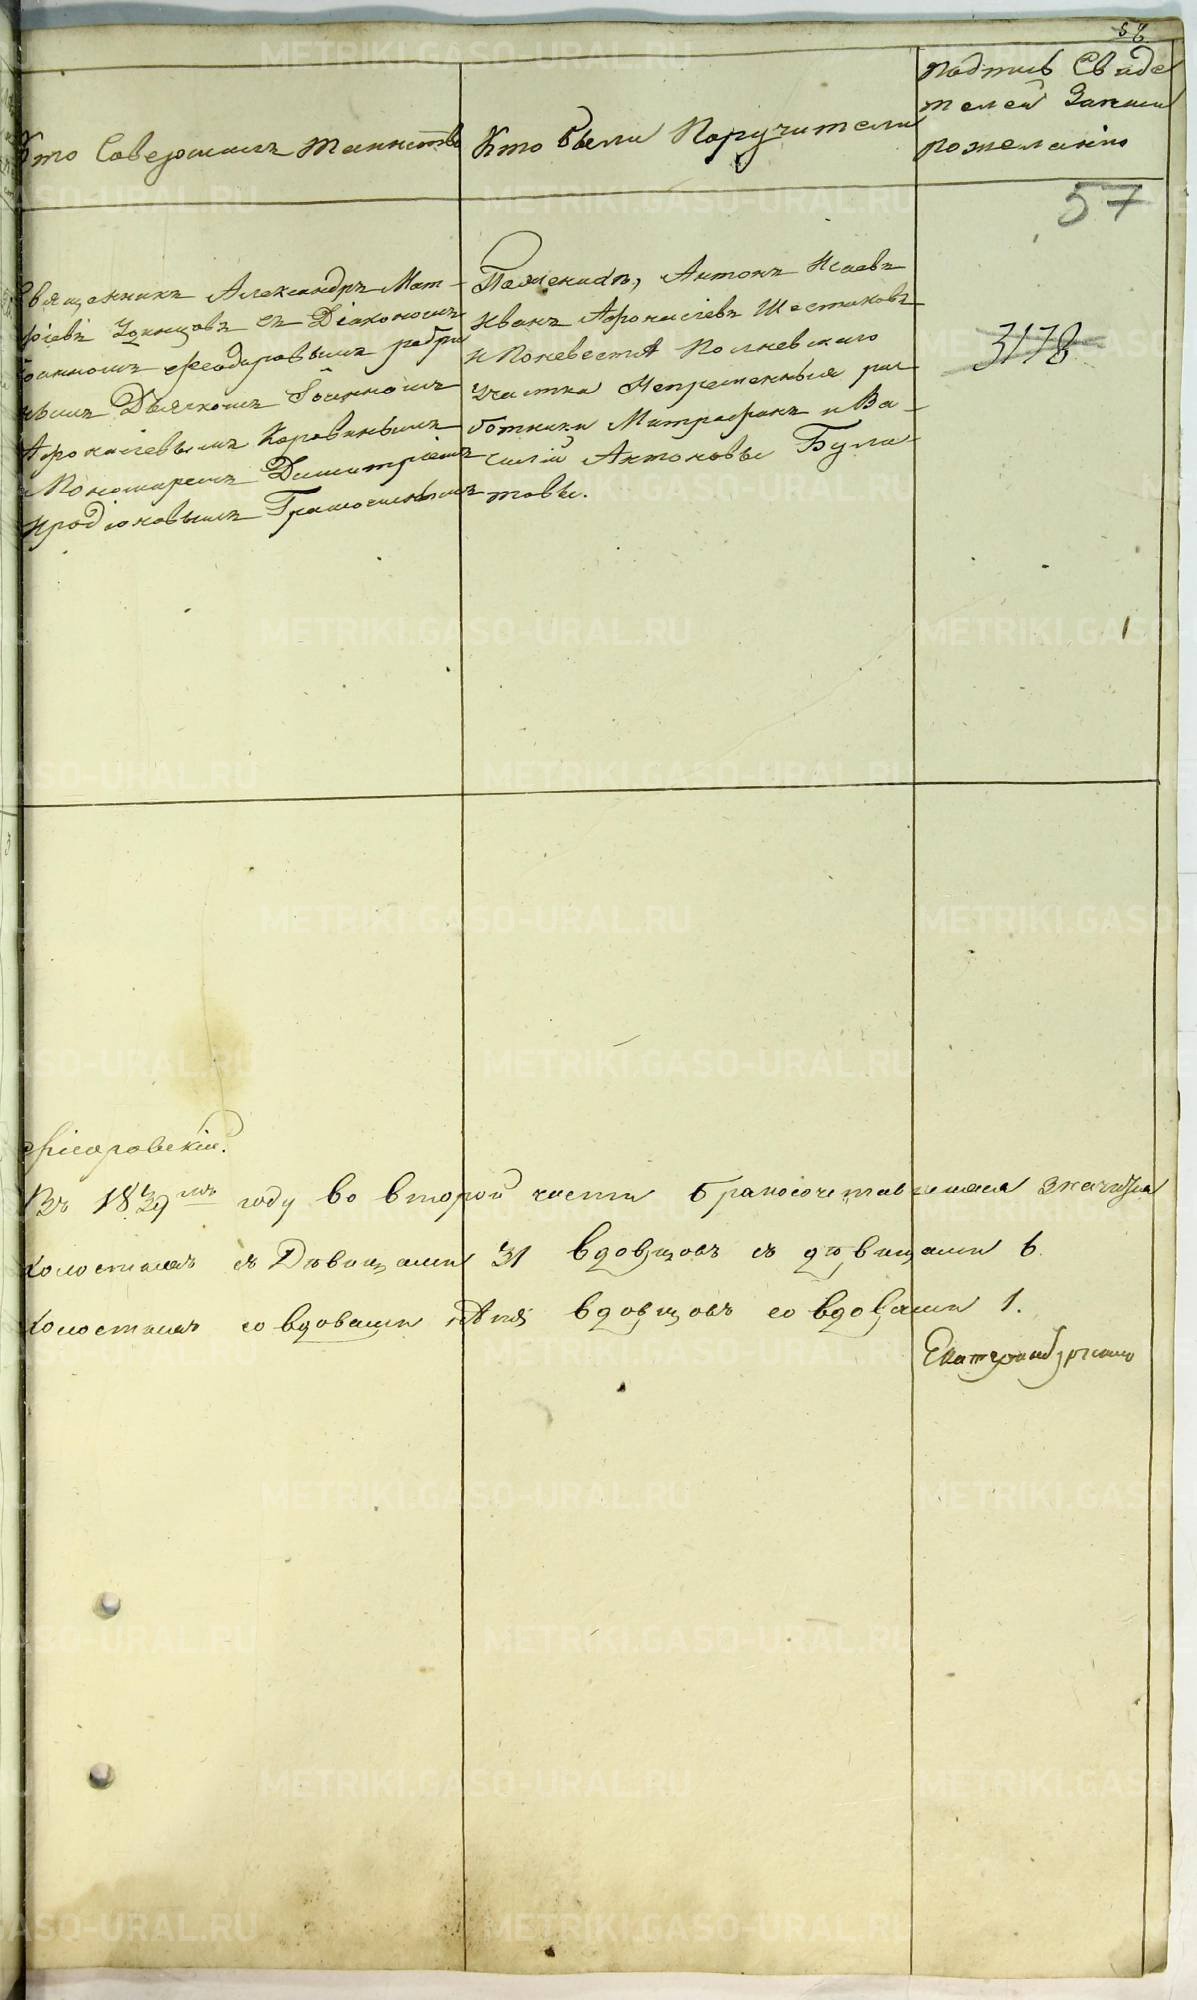 58
Кто Совершалъ таинство
Кто были Поручители
подпись Свиде
телей Записи
по желанію
57
3178
Священникъ Александръ Мат-
фіевъ съ Діакономъ
Іоанномъ Феодоровымъ
Дьячкомъ Іоанномъ
Афонасіевымъ Коровинымъ
и Пономаремъ Димитріемъ
Иродіоновымъ
По женихѣ, Антонъ Исаевъ
Иванъ Афонасіевъ Шестаковъ
и По невестѣ Полневскаго
участка Непременныя ра
ботники Митрофанъ и Ва-
силій Антоновы Була
товы.
Въ 1839мъ году во второй части бракосочетавшихся значится
холостыхъ съ Дѣвицами 31 вдовцовъ съ дѣвицами 6.
холостыхъ со вдовами вдовцовъ со вдовами 1.
Екатеринбургскаго
METRIKI.GASO-URAL.RU